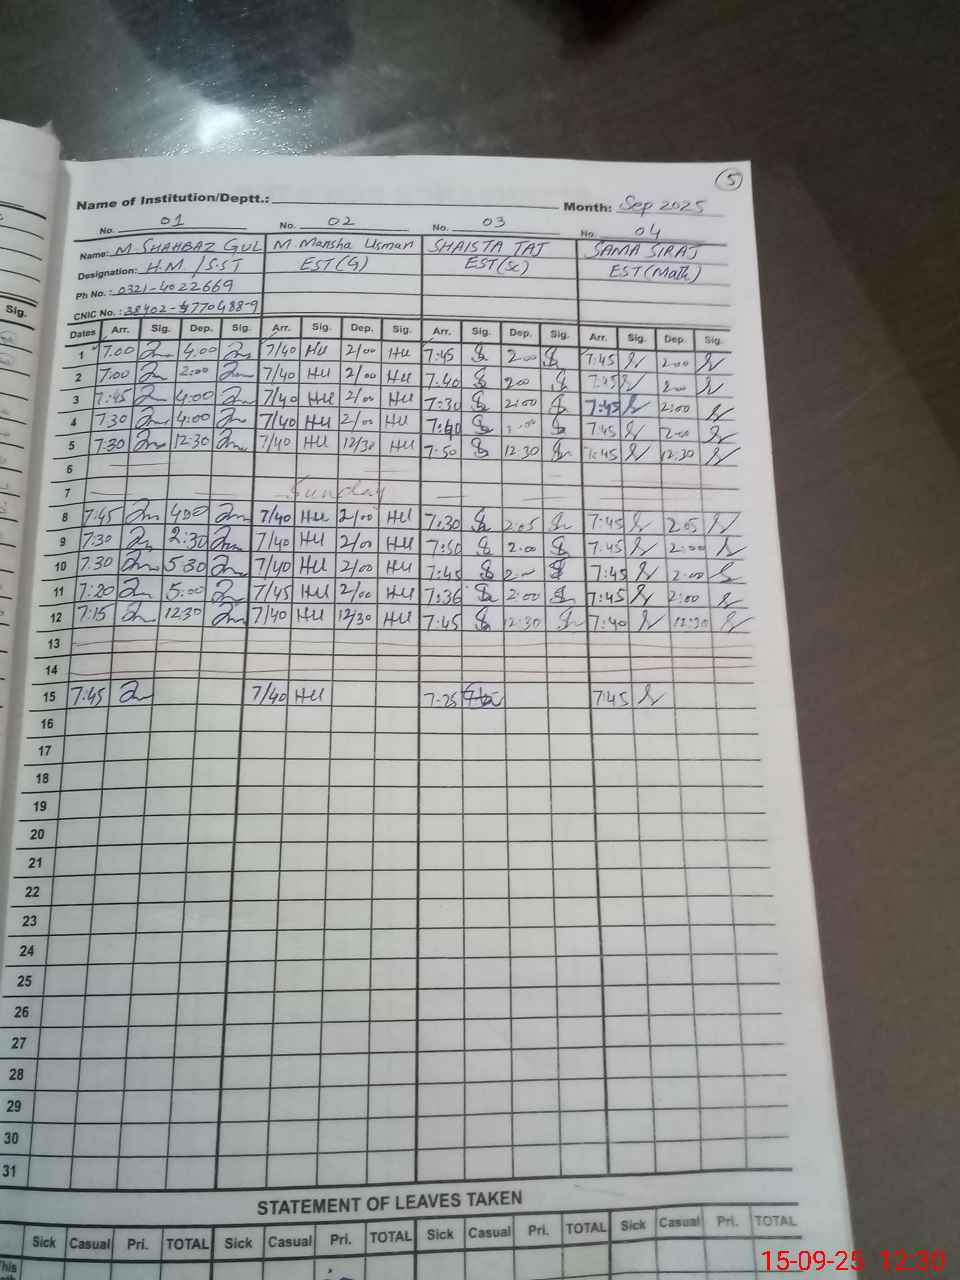 5
Name of Institution/Deptt.: Month: Sep 2025
No. 01 No. 02 No. 03 No. 04
Name: M. SHAHBAZ GUL M. Mansha Usman SHAISTA TAJ SAMA SIRAJ
Designation: H.M. / S.S.T EST(G) EST(Sc) EST(Math)
Ph No.: 0321-4022669
CNIC No.: 38402-9770488-9
Sig. Dates Arr. Sig. Dep. Sig. Arr. Sig. Dep. Sig. Arr. Sig. Dep. Sig. Arr. Sig. Dep. Sig.
1 7:00 4:00 7/40 2/00 7:45 2:00 7:45 2:00
2 7:00 2:00 7/40 2/00 7:40 2:00 7:45 2:00
3 7:45 4:00 7/40 2/00 7:30 2:00 7:45 2:00
4 7:30 4:00 7/40 2/00 7:40 7:45 2:00
5 7:30 12:30 7/40 12/30 7:50 12:30 7:45 12:30
6
7 Sunday
8 7:45 4:00 7/40 2/00 7:30 2:05 7:45 2:05
9 7:30 2:30 7/40 2/00 7:50 2:00 7:45 2:00
10 7:30 5:30 7/40 2/00 7:45 2:00 7:45 2:00
11 7:20 5:00 7/45 2/00 7:36 2:00 7:45 2:00
12 7:15 12:30 7/40 12/30 7:45 12:30 7:40 12:30
13
14
15 7:45 7/40 7:25 7:45
16
17
18
19
20
21
22
23
24
25
26
27
28
29
30
31
STATEMENT OF LEAVES TAKEN
Sick Casual Pri. TOTAL Sick Casual Pri. TOTAL Sick Casual Pri. TOTAL Sick Casual Pri. TOTAL
This
15-09-25 12:30